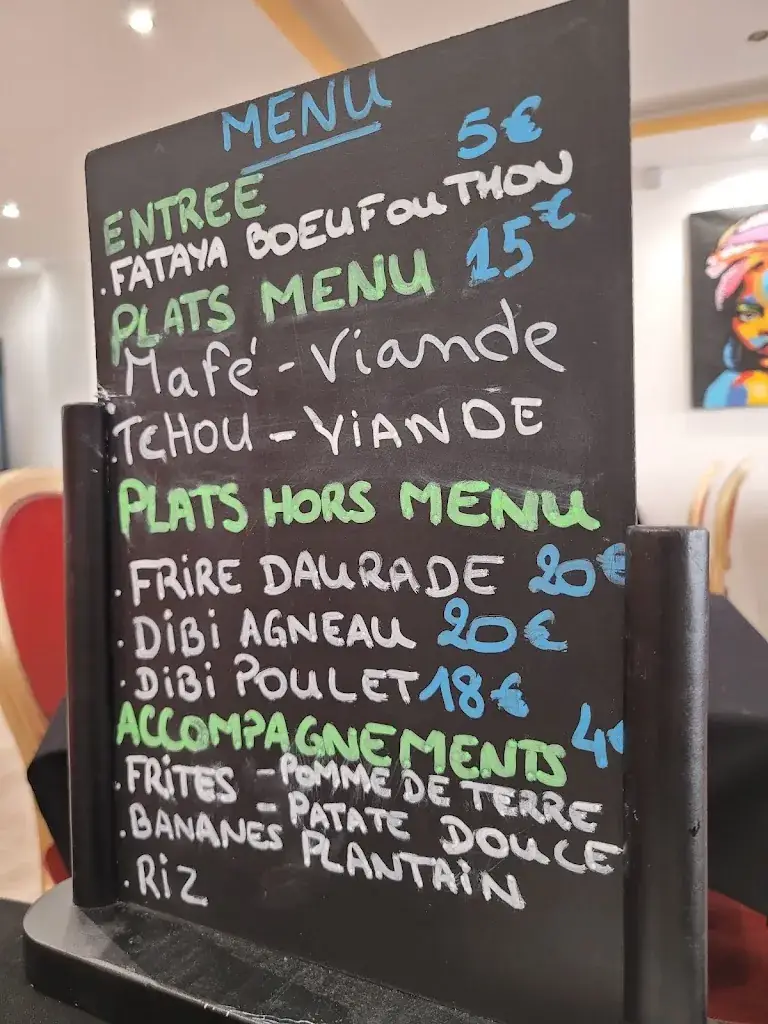 MENU
ENTREE 5€
.FATAYA BOEUF ou THON
PLATS MENU 15€
Mafé - Viande
.TCHOU - VIANDE
PLATS HORS MENU
.FRIRE DAURADE 20€
.DIBI AGNEAU 20€
.DIBI POULET 18€
ACCOMPAGNEMENTS 4€
.FRITES - POMME DE TERRE
- PATATE DOUCE
.BANANES PLANTAIN
.RIZ